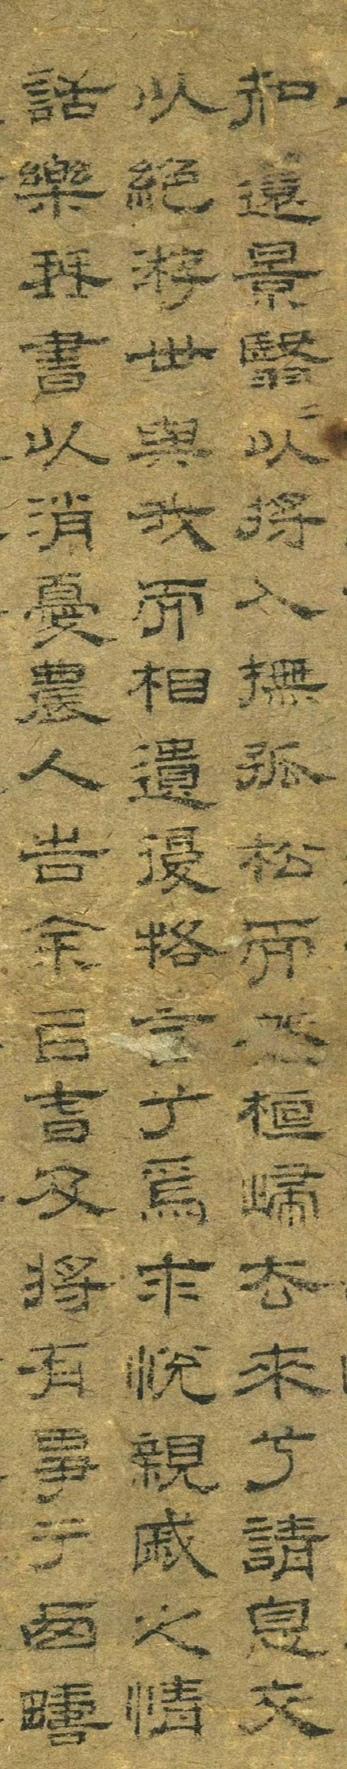 知還景翳〻以將入撫孤松而盤桓歸去來兮請息交
以絕游世與我而相遺復駕言兮焉求悅親戚之情
話樂琴書以消憂農人告余㠯春及將有事于西疇